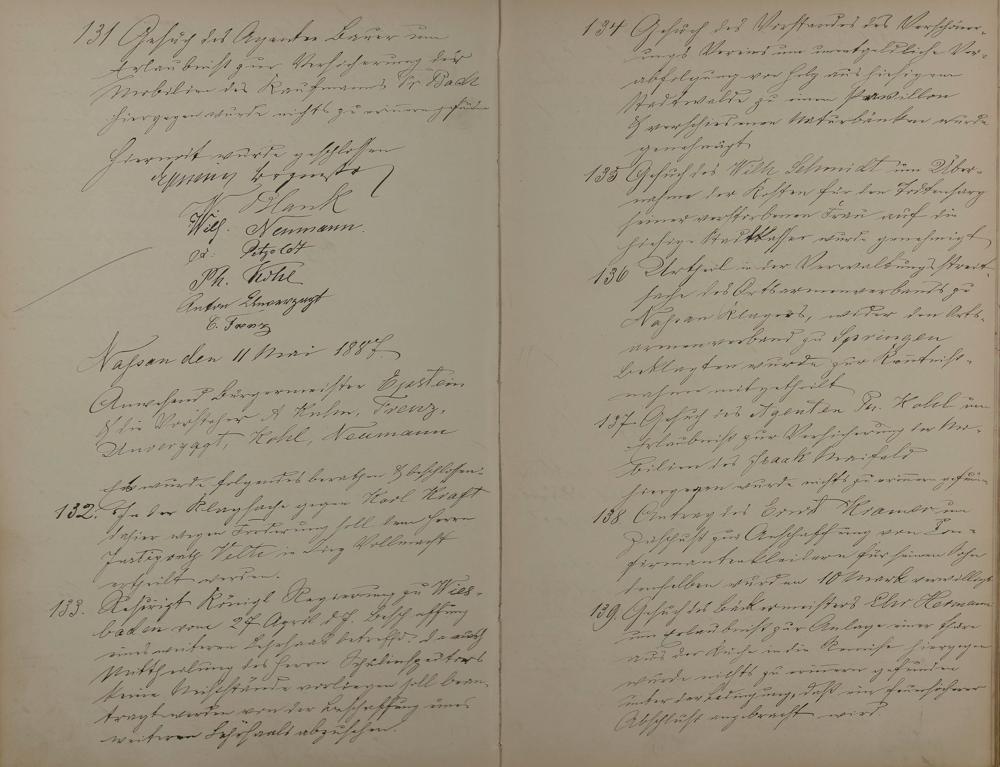 131 Gesuch des Agenten Bauer um
Erlaubniß zur Versicherung der
Mobilien des Kaufmanns
hiergegen wurde nichts zu erinnern gefunden
Hiermit wurde geschlossen
Blank
Wilh. Neumann
Petzoldt
Ph. Kohl
Anton Unverzagt
C. Trenz
Nassau den 11 Mai 1887
Anwesend Bürgermeister Epstein
& die Vorsteher A Kuhn, Trenz,
Unverzagt, Kohl, Neumann
Es wurde folgendes berathen & beschlossen
132. In der Klagsache gegen Karl Kraft
dahier wegen Forderung soll dem Herrn
Justizrath in Vollmacht
ertheilt werden.
133. Rescript Königl Regierung zu Wies-
baden vom 27 April d J. Beschaffung
eines weiteren Lehrsaals betreffd. Da nach
Mittheilung des Herrn Schulinspectors
keine Mißstände vorliegen soll bean-
tragt werden von der Beschaffung eines
weiteren Lehrsaals abzusehen.
134 Gesuch des Vorstandes des Verschöner-
ungs Vereins um unentgeldliche Ver-
abfolgung von Holz aus hiesigem
Stadtwalde zu einem Pavillon
& verschiedenen Naturbänken wurde
genehmigt
135 Gesuch des Wilh Schmidt um Über-
nahme der Kosten für den Todtensarg
seiner verstorbenen Frau auf die
hiesige Stadtkasse wurde genehmigt
136 Urtheil in der Verwaltungsstreit-
sache des Ortsarmenverbands zu
Nassau Klägers, wider den Orts-
armenverband zu Springen
Beklagten wurde zur Kenntniß-
nahme mitgetheilt
137 Gesuch des Agenten Ph. Kohl um
Erlaubniß zur Versicherung der Mo-
bilien des Isaak Maifeld
hiergegen wurde nichts zu erinnern gefunden
138 Antrag des Ernst Kramer um
Zuschuß zur Anschaffung von Con-
firmantenkleidern für seinen Sohn
demselben wurden 10 Mark verwilligt
139 Gesuch des Bäckermeisters Chr Hermann
um Erlaubniß zur Anlage einer Thüre
aus der Küche in die Remise hiergegen
wurde nichts zu erinnern gefunden
unter der Bedingung, daß ein feuersicherer
Abschluß angebracht wird.